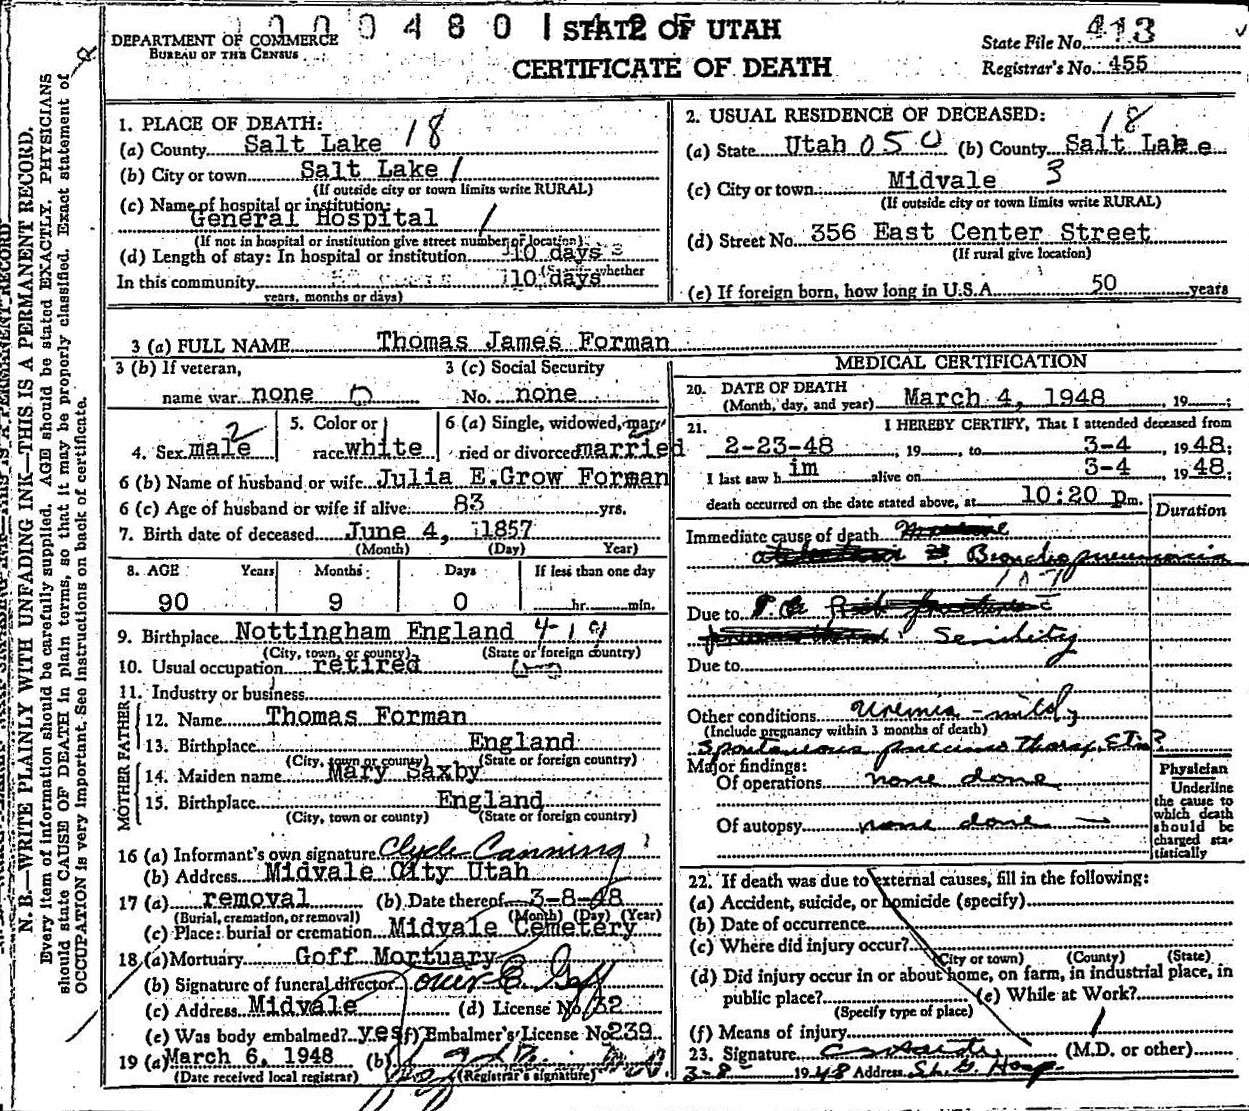 STATE OF UTAH
DEPARTMENT OF COMMERCE
BUREAU OF THE CENSUS
CERTIFICATE OF DEATH
State File No. 413
Registrar's No. 455
N. B.—WRITE PLAINLY WITH UNFADING INK—THIS IS A PERMANENT RECORD.
Every item of information should be carefully supplied. AGE should be stated EXACTLY. PHYSICIANS
should state CAUSE OF DEATH in plain terms, so that it may be properly classified. Exact statement of
OCCUPATION is very important. See instructions on back of certificate.
1. PLACE OF DEATH:
(a) County Salt Lake 18
(b) City or town Salt Lake 1
(If outside city or town limits write RURAL)
(c) Name of hospital or institution:
General Hospital 1
(If not in hospital or institution give street number or location)
(d) Length of stay: In hospital or institution 10 days
(Specify whether
In this community 10 days
years, months or days)
2. USUAL RESIDENCE OF DECEASED:
(a) State Utah 050 (b) County Salt Lake 18
(c) City or town: Midvale 3
(If outside city or town limits write RURAL)
(d) Street No. 356 East Center Street
(If rural give location)
(e) If foreign born, how long in U.S.A. 50 years
3 (a) FULL NAME Thomas James Forman
3 (b) If veteran,
name war none
3 (c) Social Security
No. none
4. Sex male 2
5. Color or
race white
6 (a) Single, widowed, mar-
ried or divorced married
6 (b) Name of husband or wife Julia E.Grow Forman
6 (c) Age of husband or wife if alive 83 yrs.
7. Birth date of deceased June 4, 1857
(Month) (Day) Year)
8. AGE Years Months Days If less than one day
90 9 0 hr. min.
9. Birthplace Nottingham England
(City, town, or county) (State or foreign country)
10. Usual occupation retired
11. Industry or business
FATHER
12. Name Thomas Forman
13. Birthplace England
(City, town or county) (State or foreign country)
MOTHER
14. Maiden name Mary Saxby
15. Birthplace England
(City, town or county) (State or foreign country)
16 (a) Informant's own signature Clyde Canning
(b) Address Midvale City Utah
17 (a) removal (b) Date thereof 3-8-48
(Burial, cremation, or removal) (Month) (Day) (Year)
(c) Place: burial or cremation Midvale Cemetery
18 (a) Mortuary Goff Mortuary
(b) Signature of funeral director Goff
(c) Address Midvale (d) License No. 32
(e) Was body embalmed? yes (f) Embalmer's License No. 239
19 (a) March 6, 1948 (b)
(Date received local registrar) (Registrar's signature)
MEDICAL CERTIFICATION
20. DATE OF DEATH
(Month, day, and year) March 4, 1948, 19
21. I HEREBY CERTIFY, That I attended deceased from
2-23-48, 19, to 3-4, 1948;
I last saw h im alive on 3-4, 1948;
death occurred on the date stated above, at 10:20 p m.
Duration
Immediate cause of death
Bronchopneumonia
107
Due to
Senility
Due to
Other conditions Uremia - mild
(Include pregnancy within 3 months of death)
Spontaneous
Major findings:
Of operations none done
Of autopsy none done
Physician
Underline
the cause to
which death
should be
charged sta-
tistically
22. If death was due to external causes, fill in the following:
(a) Accident, suicide, or homicide (specify)
(b) Date of occurrence
(c) Where did injury occur?
(City or town) (County) (State)
(d) Did injury occur in or about home, on farm, in industrial place, in
public place? (e) While at Work?
(Specify type of place)
(f) Means of injury
23. Signature (M.D. or other)
3-8 1948 Address S.L.G. Hosp.